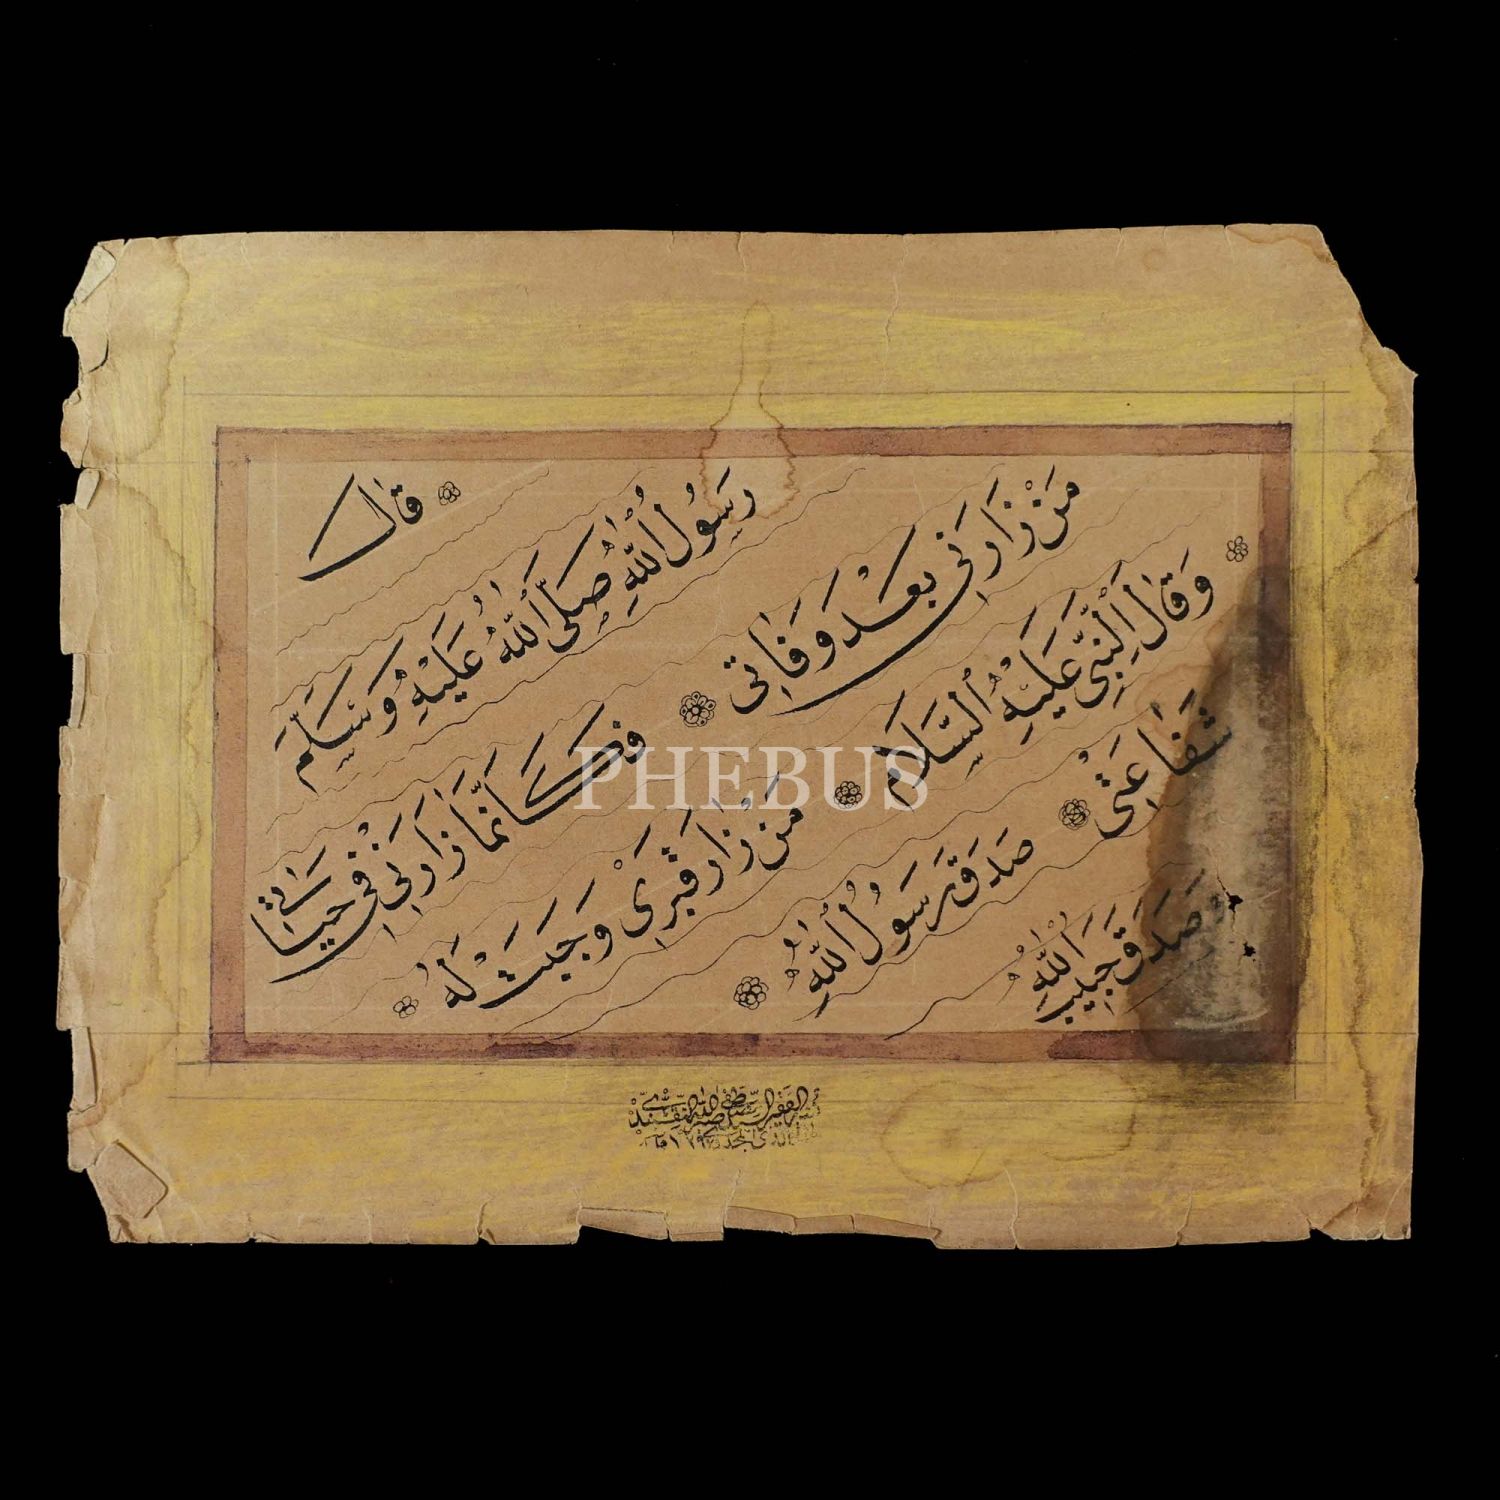 قَالَ
رَسُولُ اللّٰهِ صَلَّى اللّٰهُ عَلَيْهِ وَسَلَّمَ
مَنْ زَارَنِي بَعْدَ وَفَاتِي
فَكَأَنَّمَا زَارَنِي فِي حَيَاتِي
وَقَالَ النَّبِيُّ عَلَيْهِ السَّلَامُ
مَنْ زَارَ قَبْرِي وَجَبَتْ لَهُ
شَفَاعَتِي
صَدَقَ رَسُولُ اللّٰهِ
وَصَدَقَ حَبِيبُ اللّٰهِ
الفقير السيد
PHEBUS